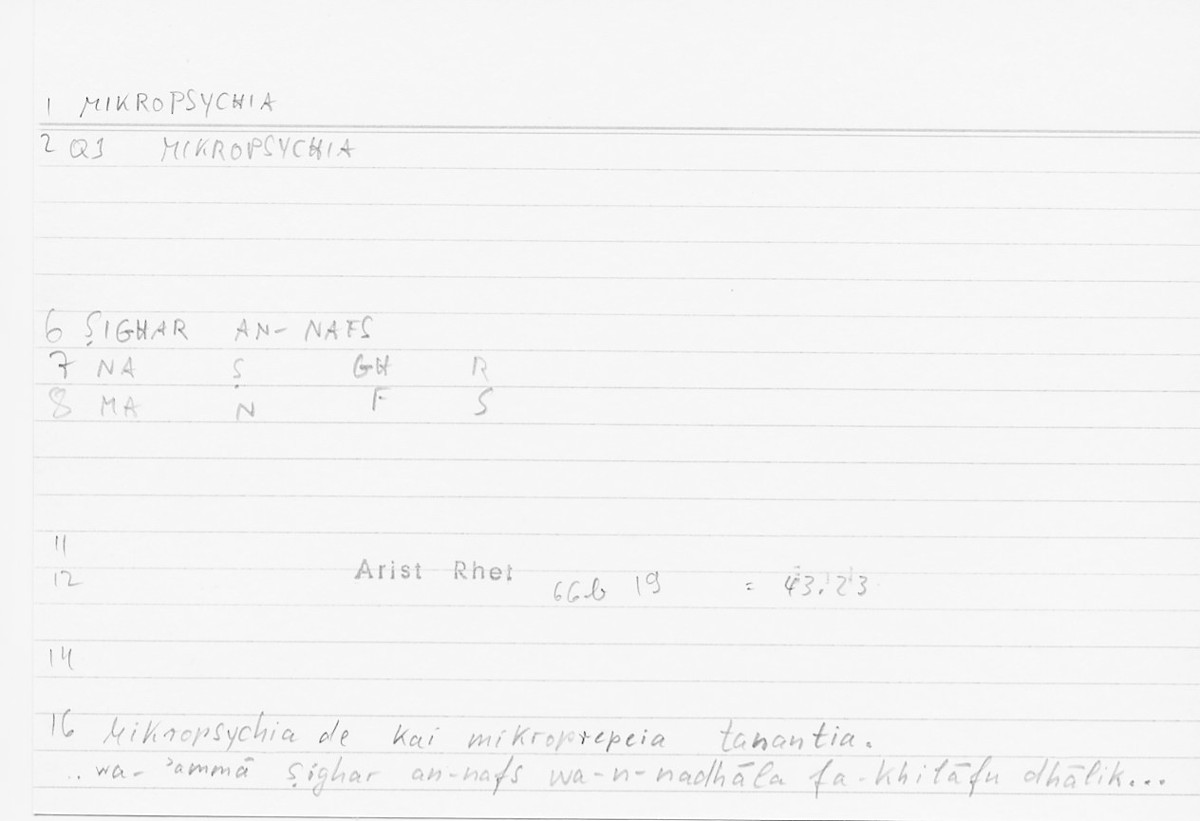 1 MIKROPSYCHIA
2 Q1 MIKROPSYCHIA
6 ṢIGHAR AN-NAFS
7 NA Ṣ GH R
8 MA N F S
11
12 Arist Rhet 66b 19 = 43.23
14
16 Mikropsychia de kai mikroprepeia tanantia.
.. wa-ʾammā ṣighar an-nafs wa-n-nadhāla fa-khilāfu dhālik...